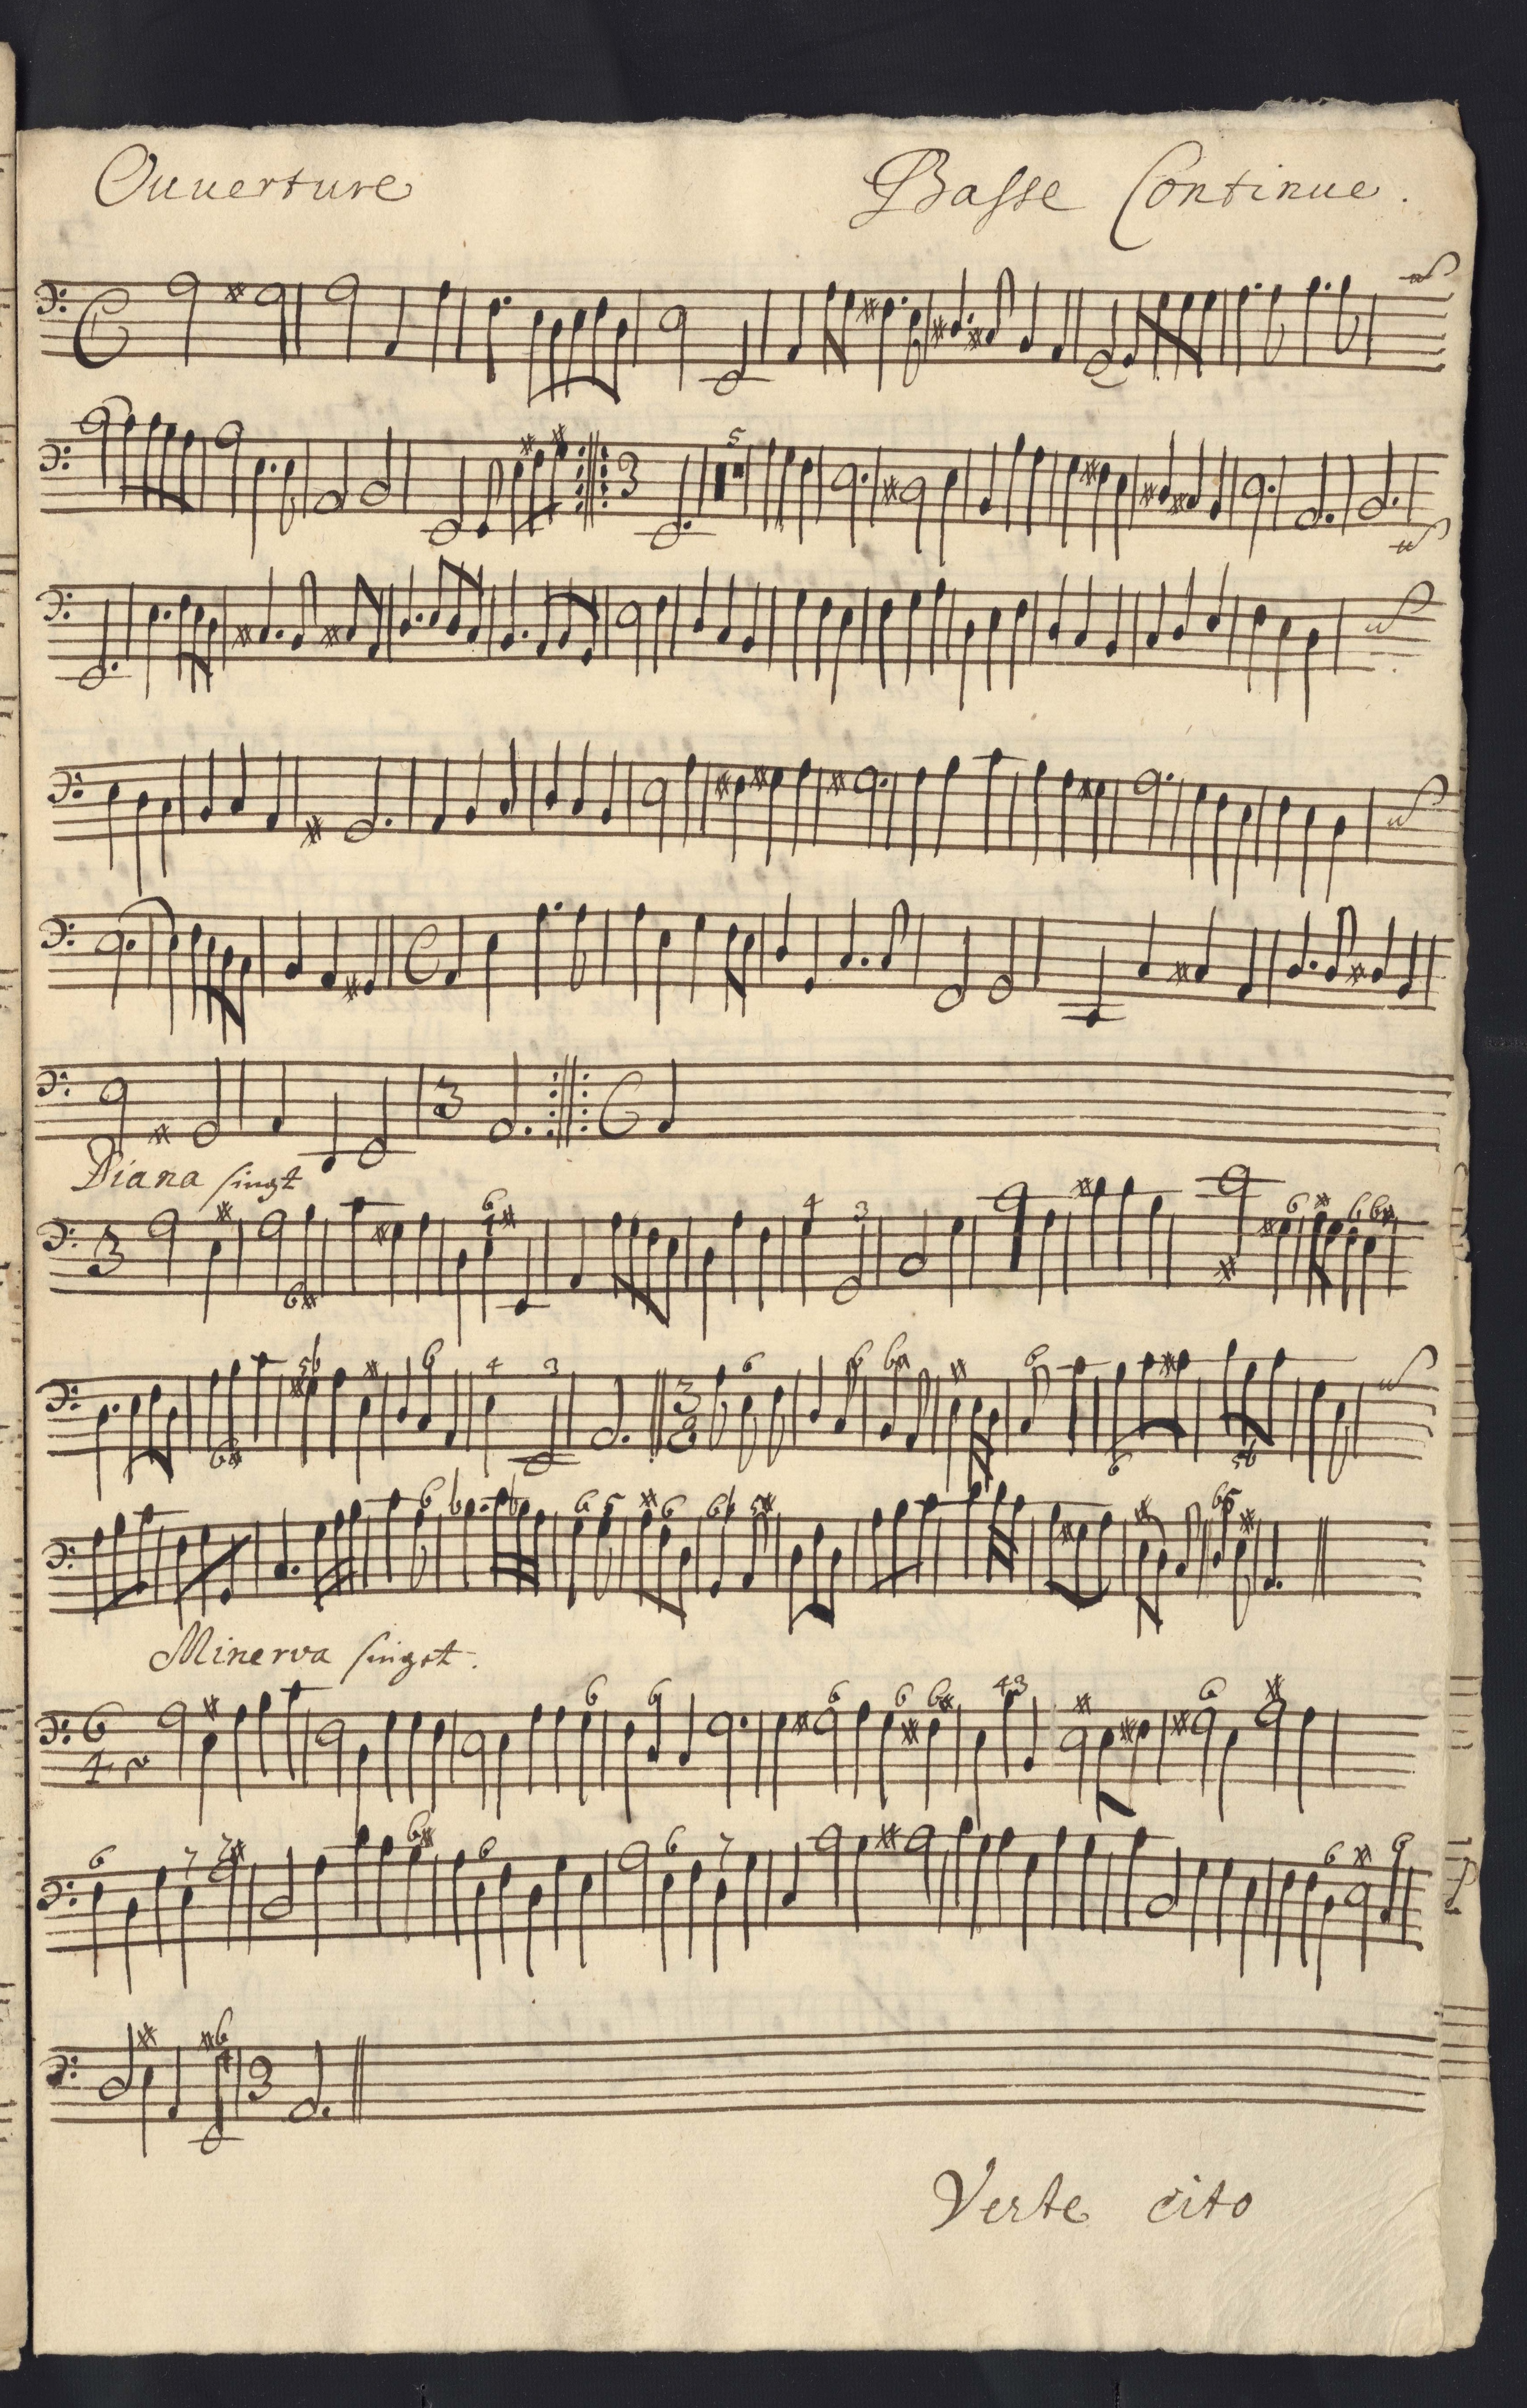 Ouuerture Basse Continue.
Diana singt
Minerva singet.
Verte cito